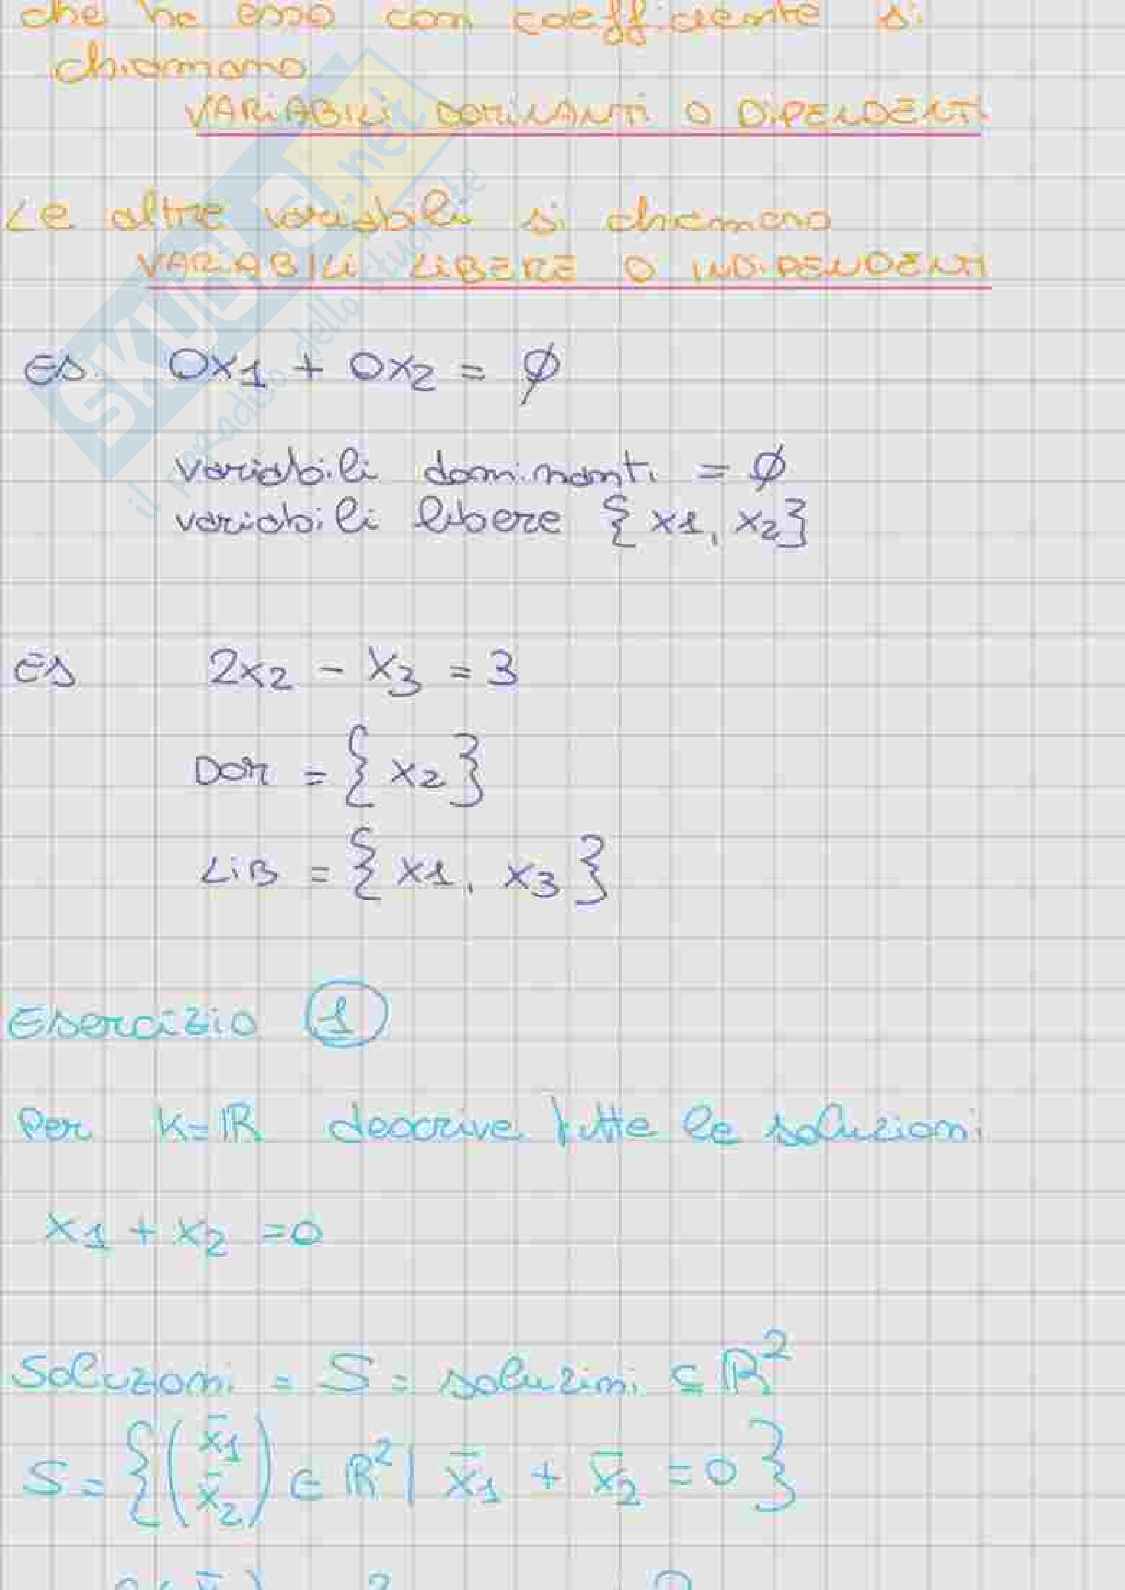 che ha esso com coefficiente si
chiamano
VARIABILI DOMINANTI O DIPENDENTI
Le altre variabili si chiamano
VARIABILI LIBERE O INDIPENDENTI
ES. 0x1 + 0x2 = ∅
variabili dominanti = ∅
variabili libere { x1, x2}
ES 2x2 - x3 = 3
DOM = { x2 }
LIB = { x1, x3 }
Esercizio 1
Per K=ℝ descrive tutte le soluzioni
x1 + x2 = 0
Soluzioni = S = soluzini ⊆ ℝ²
S = { (x̄1 x̄2) ∈ ℝ² | x̄1 + x̄2 = 0 }
SKUOLA.net
il paradiso dello studente